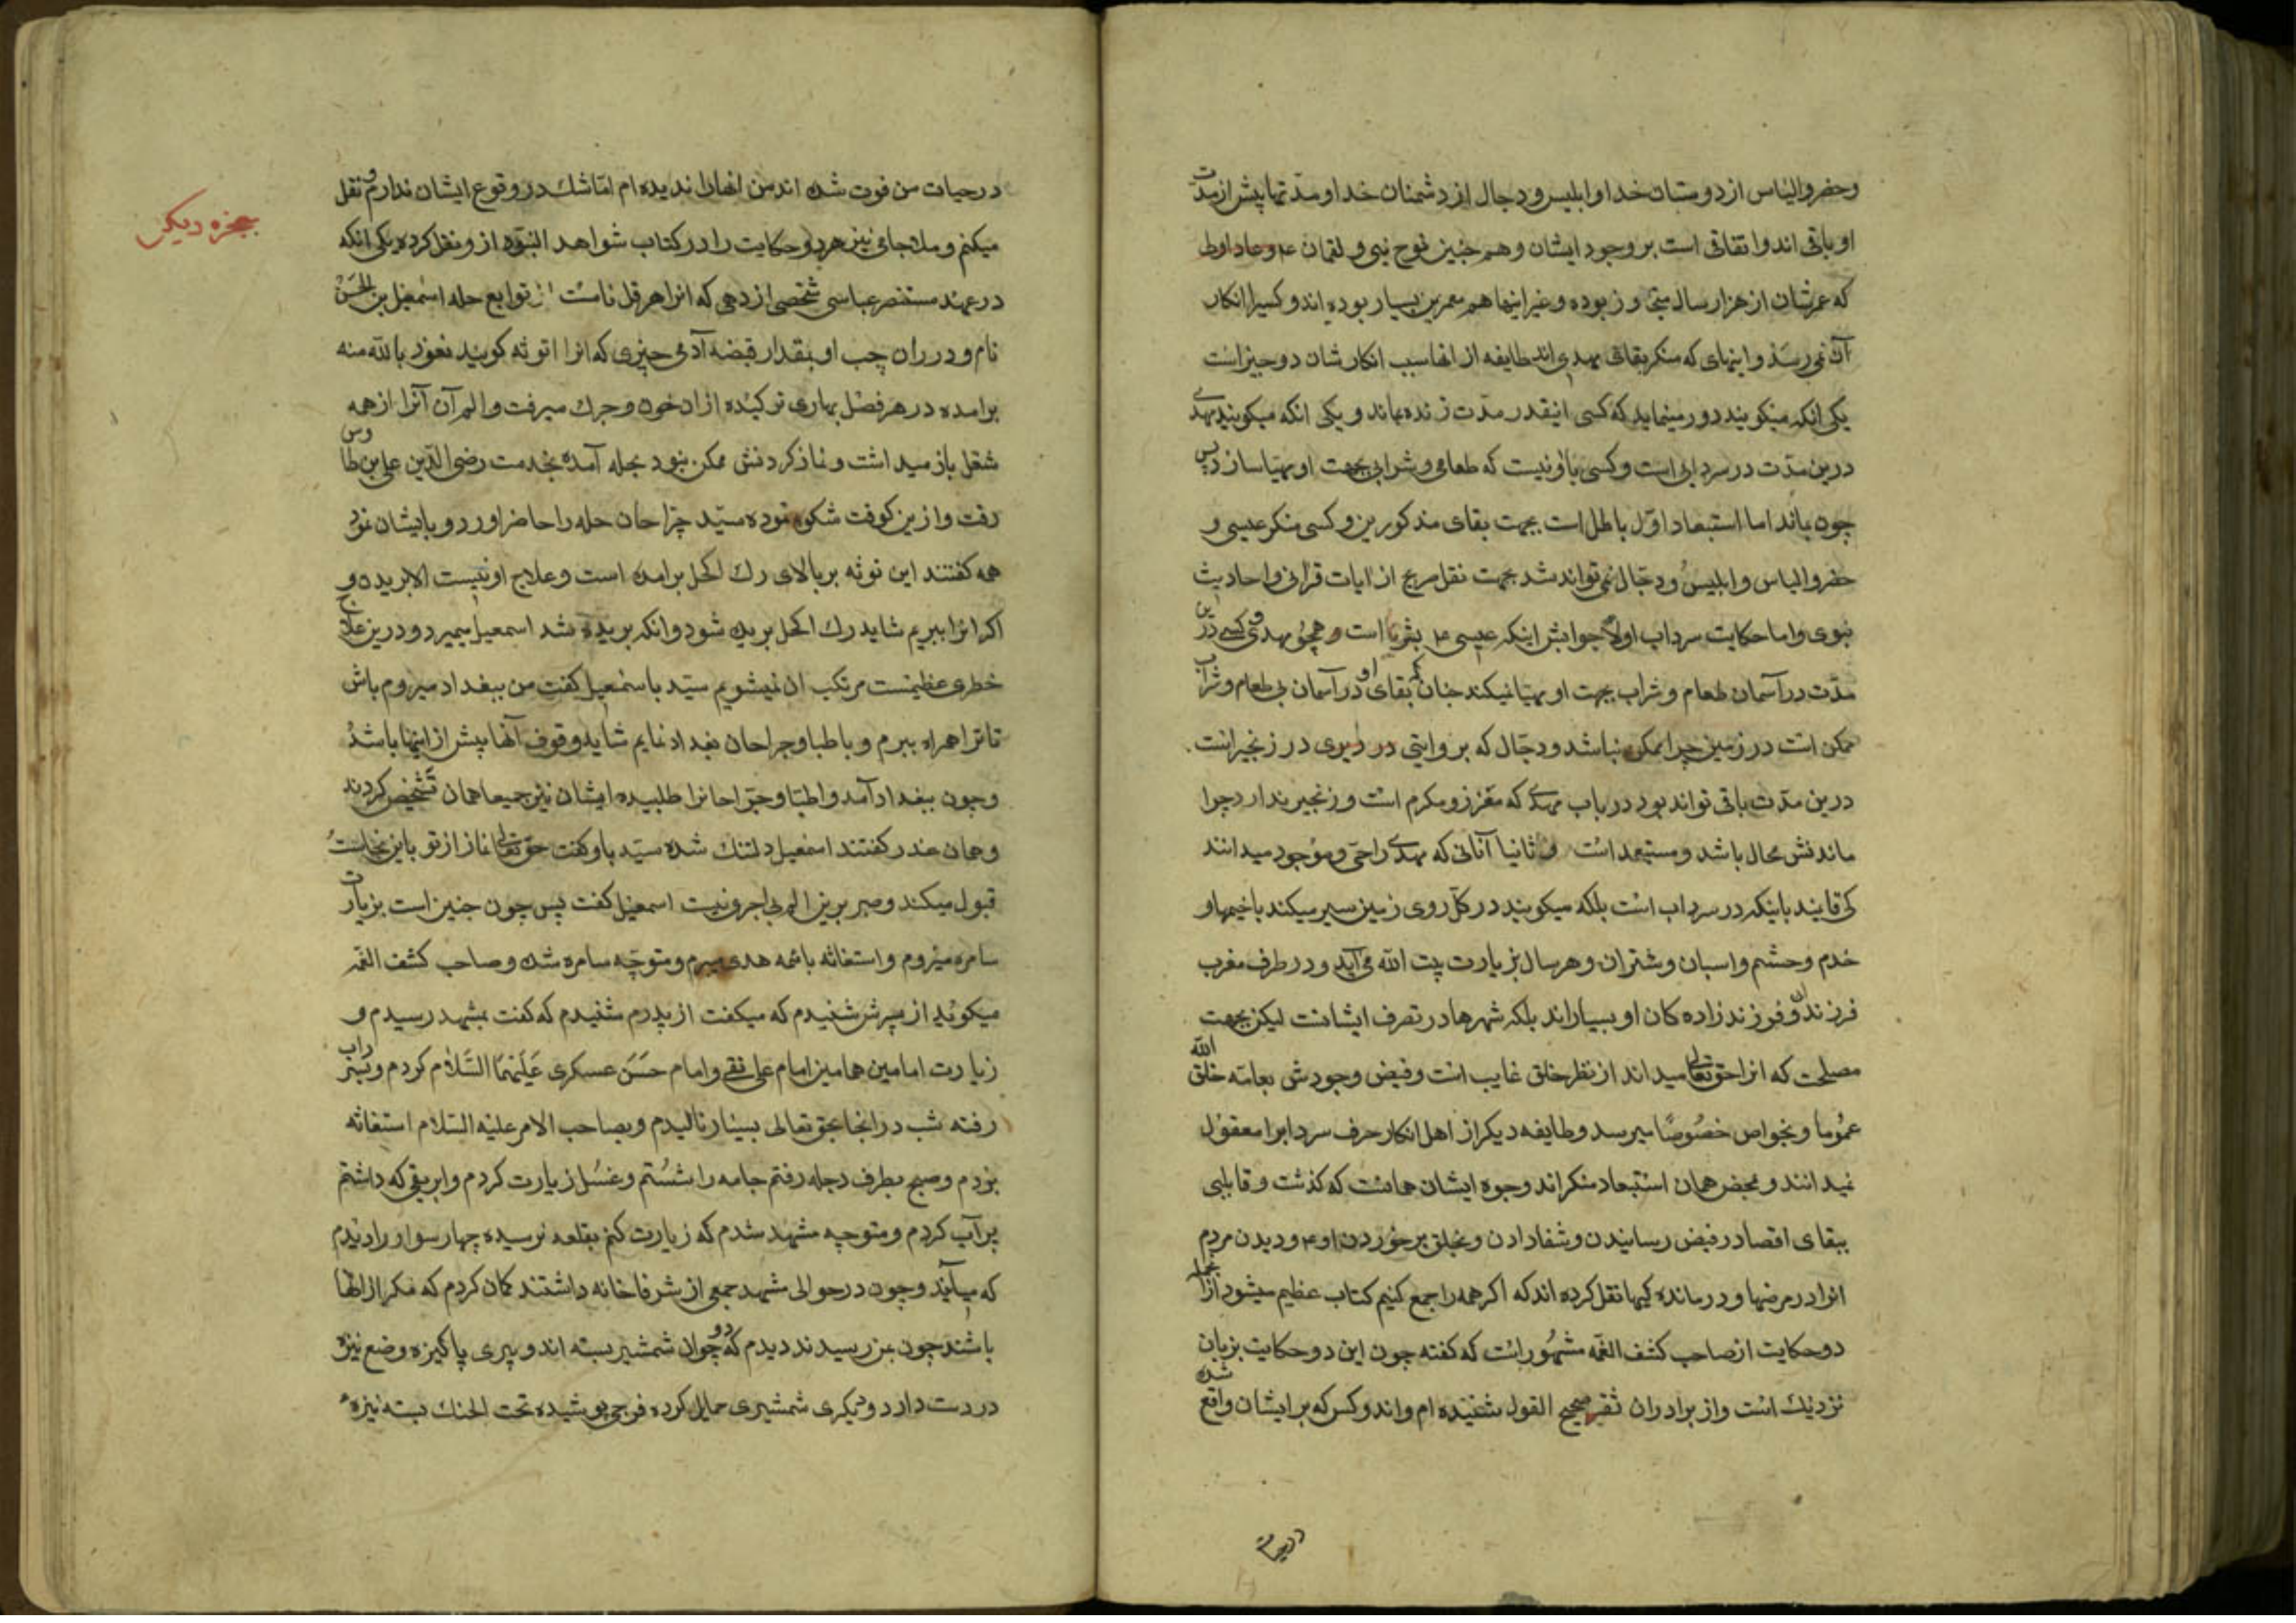 وخضر والیاس از دوستان خدا و ابلیس و دجال از دشمنان خدا و مدتها پیش از مدت
او باقی اند و اتفاقی است بر وجود ایشان و هم چنین نوح نبی و لقمان ع و عاد اولی
که عمرشان از هزار سال متجاوز بوده و غیر اینها هم معمرین بسیار بوده اند و کسیرا انکار
آن نمی رسد و اینهای که منکر بقای مهدی اند طایفه از انها سبب انکارشان دو چیز است
یکی انکه میکویند دور مینماید که کسی اینقدر مدت زنده بماند و یکی انکه میکویند مهدی
درین مدت در سردابی است و کسی با او نیست که طعامی و شرابی بجهت او مهیا سازد پس
چون بماند اما استبعاد اول باطل است بجهت بقای مذکورین و کسی منکر عیسی و
خضر و الیاس و ابلیس و دجال نمی تواند شد بجهت نقل صریح از ایات قرانی و احادیث
نبوی و اما حکایت سرداب اولا جوابش اینکه عیسی ع بشر است و همچو مهدی و کسی درین
مدت در آسمان طعام و شراب بجهت او مهیا نمیکند چنان که بقای او در آسمان بی طعام و شراب
ممکن است در زمین چرا ممکن نباشد و دجال که بروایتی در دیری در زنجیر است
درین مدت باقی تواند بود در باب مهدی که معزز و مکرم است و زنجیر ندارد چرا
ماندنش محال باشد و مستبعد است و ثانیا آنانی که مهدی را حی و موجود میدانند
کی قایند باینکه در سرداب است بلکه میکویند در کل روی زمین سیر میکند با خیمها و
خدم و حشم و اسبان و شتران و هر سال بزیارت بیت الله می آید و در طرف مغرب
فرزندان و فرزند زاده کان او بسیار اند بلکه شهرها در تصرف ایشانست لیکن بجهت
مصلحت که انرا حق تعالی میداند از نظر خلق غایب است و فیض وجودش بعامه خلق الله
عموما و بخواص خصوصا میرسد و طایفه دیکر از اهل انکار حرف سردابرا معقول
نمیدانند و بمحض همان استبعاد منکر اند و جوه ایشان همانست که کذشت و قایلی
ببقای اقصا در فیض رسانیدن و شفا دادن و بخلق برخوردن او ع و دیدن مردم
انرا در مرضها و درمانده کیها نقل کرده اند که اکر همه را جمع کنیم کتاب عظیم میشود از انجمله
دو حکایت از صاحب کشف الغمه مشهور است که کفته چون این دو حکایت بزمان
نزدیک است و از برادران ثقه صحیح القول شنیده ام و اندو کس که بر ایشان واقع شده
در حیات
در حیات من فوت شده اند من انها را ندیده ام اما شک در وقوع ایشان ندارم و نقل
میکنم و ملا جامی نیز هر دو حکایت را در کتاب شواهد النبوه از و نقل کرده یکی انکه
معجزه دیکر
در عهد مستنصر عباسی شخصی از دهی که انرا هرقل نامست از توابع حله اسمعیل بن الحسن
نام و در ران چپ او بمقدار قبضه آدمی چیزی که انرا توثه کویند نعوذ بالله منه
برامده در هر فصل بهاری ترکیده از ان خون و چرک میرفت و الم آن آنرا از همه
شغل باز میداشت و نماز کردنش ممکن نبود بحله آمده بخدمت رضی الدین علی بن طاوس
رفت و ازین کوفت شکوه نموده سید جراحان حله را حاضر اورد و بایشان نمود
همه کفتند این توثه بر بالای رک اکحل برامده است و علاج او نیست الا بریدن و
اکر انرا ببریم شاید رک اکحل بریده شود و انکه بریده شد اسمعیل بمیرد و درین علاج
خطری عظیمست مرتکب ان نمیشویم سید باسمعیل کفت من ببغداد میروم باش
تا ترا همراه ببرم و باطبا و جراحان بغداد نمایم شاید وقوف آنها بیش از اینها باشد
و چون ببغداد آمد و اطبا و جراحانرا طلبیده ایشان نیز جمیعا همان تشخیص کردند
و همان عذر کفتند اسمعیل دلتنک شده سید باو کفت حق تعالی نماز از تو باین نجاست
قبول میکند و صبر برین الم بی اجر نیست اسمعیل کفت پس چون چنین است بزیارت
سامره میروم و استغاثه بائمه هدی میبرم و متوجه سامره شد و صاحب کشف الغمه
میکوید از پسرش شنیدم که میکفت از پدرم شنیدم که کفت بمشهد رسیدم و
زیارت امامین همامین امام علی نقی و امام حسن عسکری علیهما السلام کردم و بسرداب
رفته شب در انجا بحق تعالی بسیار نالیدم و بصاحب الامر علیه السلام استغاثه
بردم و صبح بطرف دجله رفتم جامه را شستم و غسل زیارت کردم و ابریقی که داشتم
پر آب کردم و متوجه مشهد شدم که زیارت کنم بقلعه نرسیده چهار سوار را دیدم
که میآیند و چون در حوالی مشهد جمعی از شرفا خانه داشتند کمان کردم که مکر از انها
باشند چون بمن رسیدند دیدم که دو جوان شمشیر بسته اند و پیری پاکیزه وضع نیزه
در دست دارد و دیکری شمشیری حمایل کرده فرجی پوشیده تحت الحنک بسته نیزه